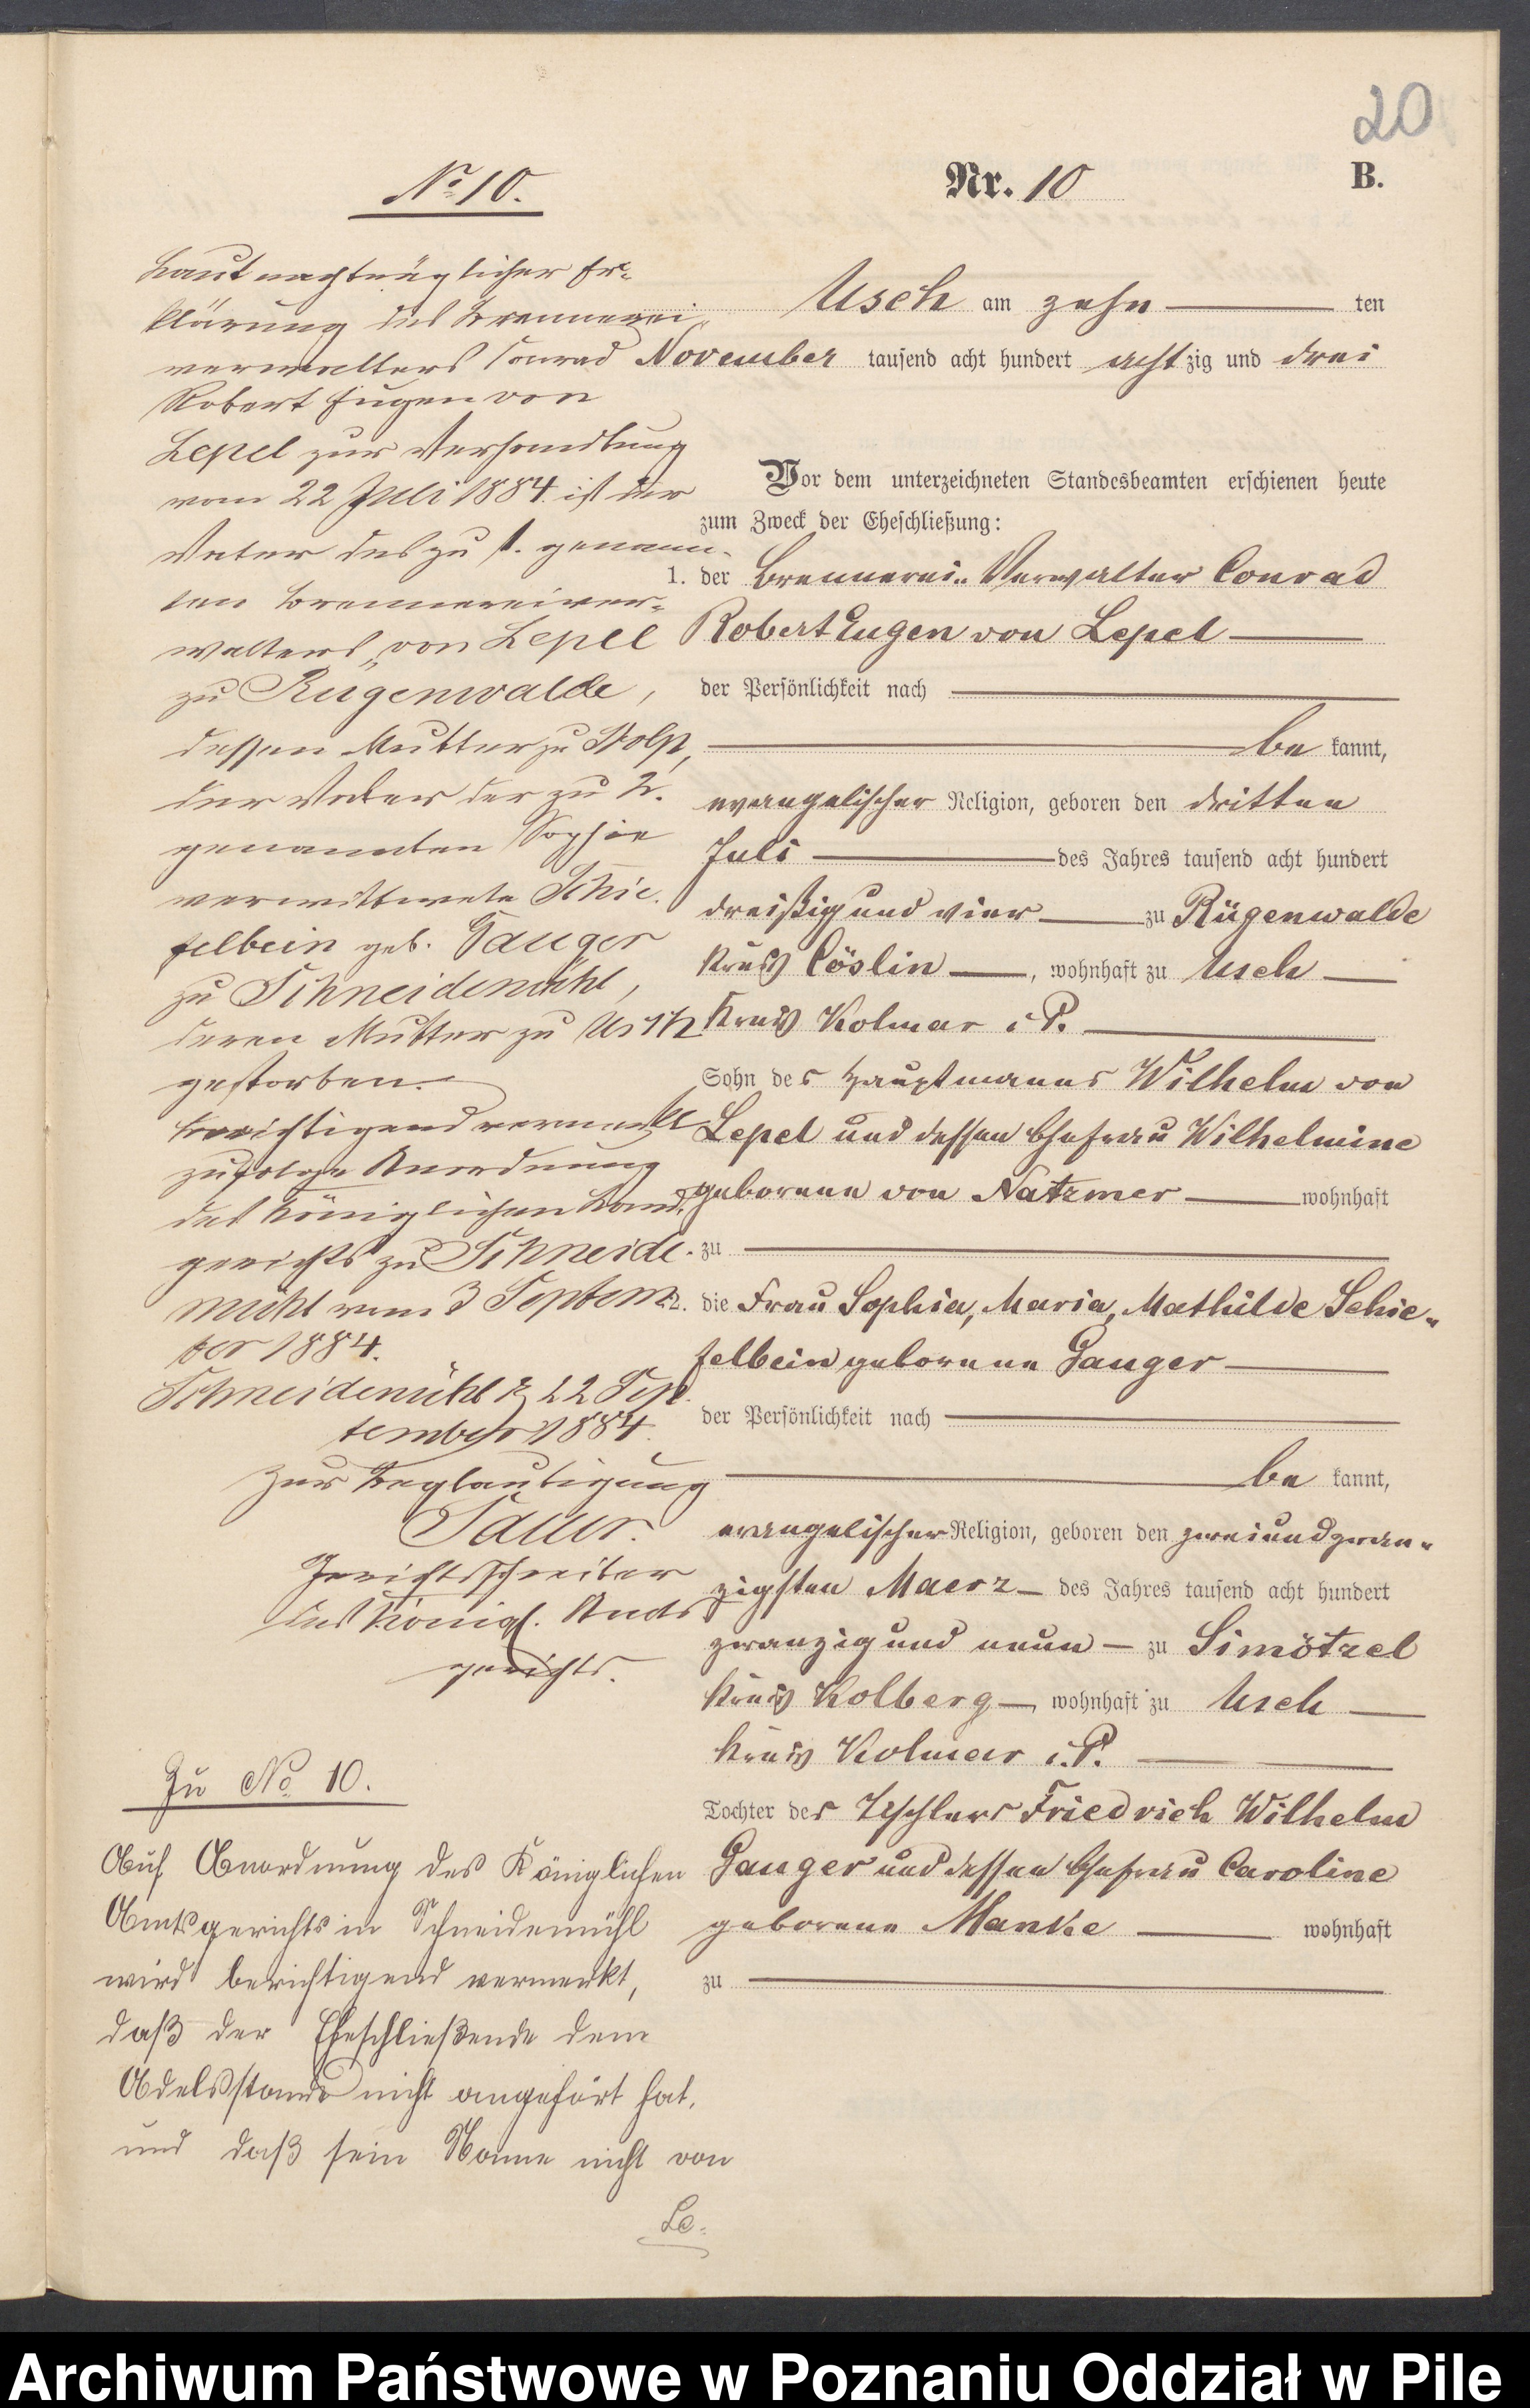 20
B.
No 10.
Laut nachträglicher Er-
klärung des Brennerei-
verwalters Conrad
Robert Eugen von
Lepel zur Verhandlung
vom 22 Juli 1884. ist der
Vater des zu 1. genann-
ten Brennereiver-
walters „von Lepel
zu Rügenwalde,
dessen Mutter zu Stolp,
der Vater der zu 2.
genannten Sophie
verwittwete Schie-
felbein geb. Gauger
zu Schneidemühl,
deren Mutter zu Usch
gestorben.
Berichtigend vermerkt
zufolge Anordnung
des Königlichen Land-
gerichts zu Schneide-
mühl vom 3 Septem-
ber 1884.
Schneidemühl d. 22 Sep-
tember 1884.
Zur Beglaubigung
Gerichtsschreiber
des Königl. Amts
gerichts.
Zu No 10.
Auf Anordnung des Königlichen
Amtsgerichts in Schneidemühl
wird berichtigend vermerkt,
daß der Eheschließende dem
Adelsstande nicht angehört hat,
und daß sein Name nicht von
Le-
Nr. 10
Usch am zehn ten
November tausend acht hundert achtzig und drei
Vor dem unterzeichneten Standesbeamten erschienen heute
zum Zweck der Eheschließung:
1. der Brennerei-Verwalter Conrad
Robert Eugen von Lepel
der Persönlichkeit nach
be kannt,
evangelischer Religion, geboren den dritten
Juli des Jahres tausend acht hundert
dreißig und vier zu Rügenwalde
Kreis Cöslin, wohnhaft zu Usch
Kreis Kolmar i. P.
Sohn des Hauptmanns Wilhelm von
Lepel und dessen Ehefrau Wilhelmine
geborene von Natzmer wohnhaft
zu
2. die Frau Sophia, Maria, Mathilde Schie-
felbein geborene Gauger
der Persönlichkeit nach
be kannt,
evangelischer Religion, geboren den zweiundzwan-
zigsten Maerz des Jahres tausend acht hundert
zwanzig und neun zu Simötzel
Kreis Kolberg, wohnhaft zu Usch
Kreis Kolmar i. P.
Tochter des Tischlers Friedrich Wilhelm
Gauger und dessen Ehefrau Caroline
geborene Manke wohnhaft
zu
Archiwum Państwowe w Poznaniu Oddział w Pile